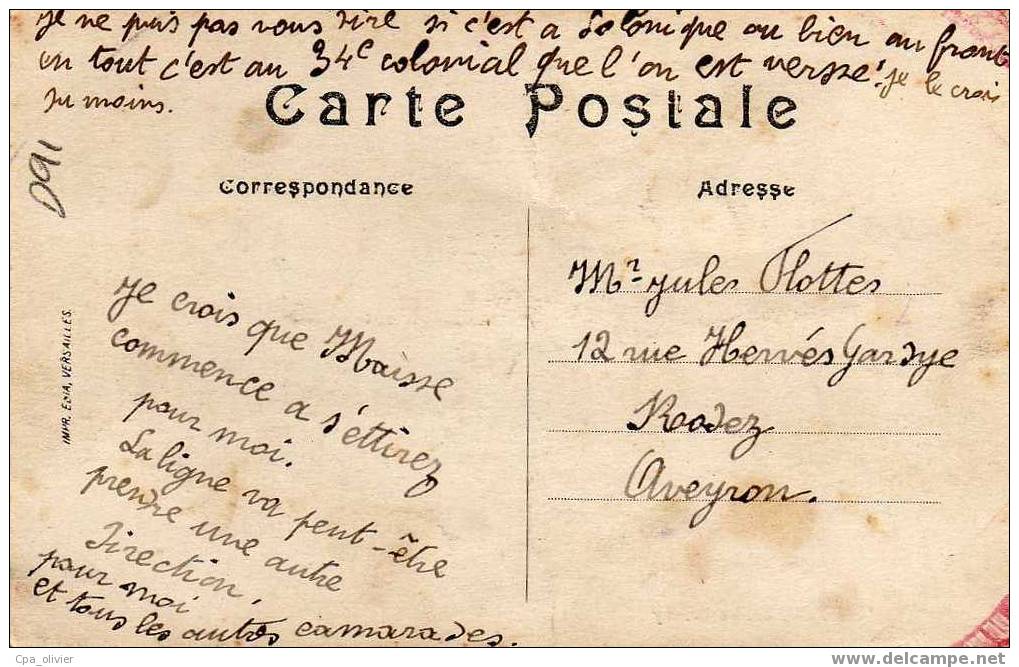 je ne puis pas vous dire si c'est a Salonique ou bien au front
en tout c'est au 34e colonial que l'on est versse. je le crois
du moins.
Carte Postale
D91
Correspondance
Adresse
Je crois que Maisse
commence a s'ettirez
pour moi.
La ligne va peut-être
prendre une autre
direction,
pour moi
et tous les autres camarades.
Mr Jules Flottes
12 rue Hervés Gardye
Roodez
Aveyron.
IMPR. EDIA, VERSAILLES.
Cpa_olivier
www.delcampe.net